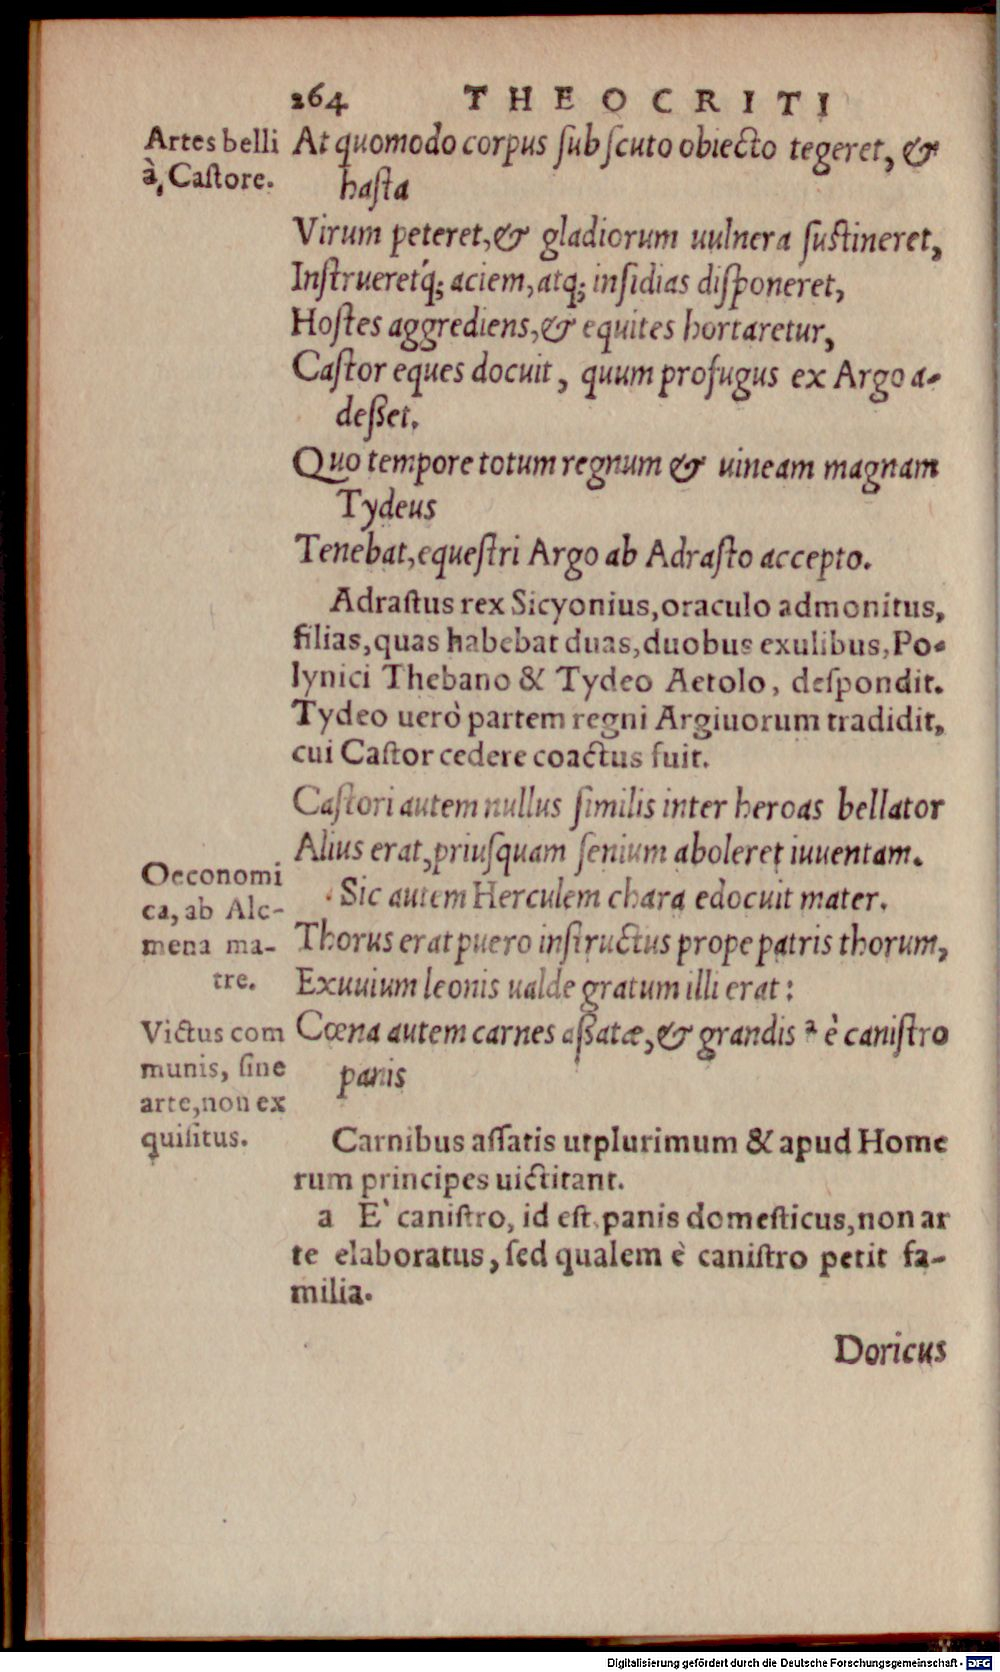 264 THEOCRITI
Artes belli
à Castore.
At quomodo corpus sub scuto obiecto tegeret, &
hasta
Virum peteret, & gladiorum uulnera sustineret,
Instrueretq́; aciem, atq; insidias disponeret,
Hostes aggrediens, & equites hortaretur,
Castor eques docuit, quum profugus ex Argo a-
desset.
Quo tempore totum regnum & uineam magnam
Tydeus
Tenebat, equestri Argo ab Adrasto accepto.
Adrastus rex Sicyonius, oraculo admonitus,
filias, quas habebat duas, duobus exulibus, Po-
lynici Thebano & Tydeo Aetolo, despondit.
Tydeo uerò partem regni Argiuorum tradidit,
cui Castor cedere coactus fuit.
Castori autem nullus similis inter heroas bellator
Alius erat, priusquam senium aboleret iuuentam.
Oeconomi
ca, ab Alc-
mena ma-
tre.
Sic autem Herculem chara edocuit mater.
Thorus erat puero instructus prope patris thorum,
Exuuium leonis ualde gratum illi erat:
Victus com
munis, sine
arte, non ex
quisitus.
Cœna autem carnes assatæ, & grandis a è canistro
panis
Carnibus assatis utplurimum & apud Home
rum principes uictitant.
a E' canistro, id est, panis domesticus, non ar
te elaboratus, sed qualem è canistro petit fa-
milia.
Doricus
Digitalisierung gefördert durch die Deutsche Forschungsgemeinschaft - DFG